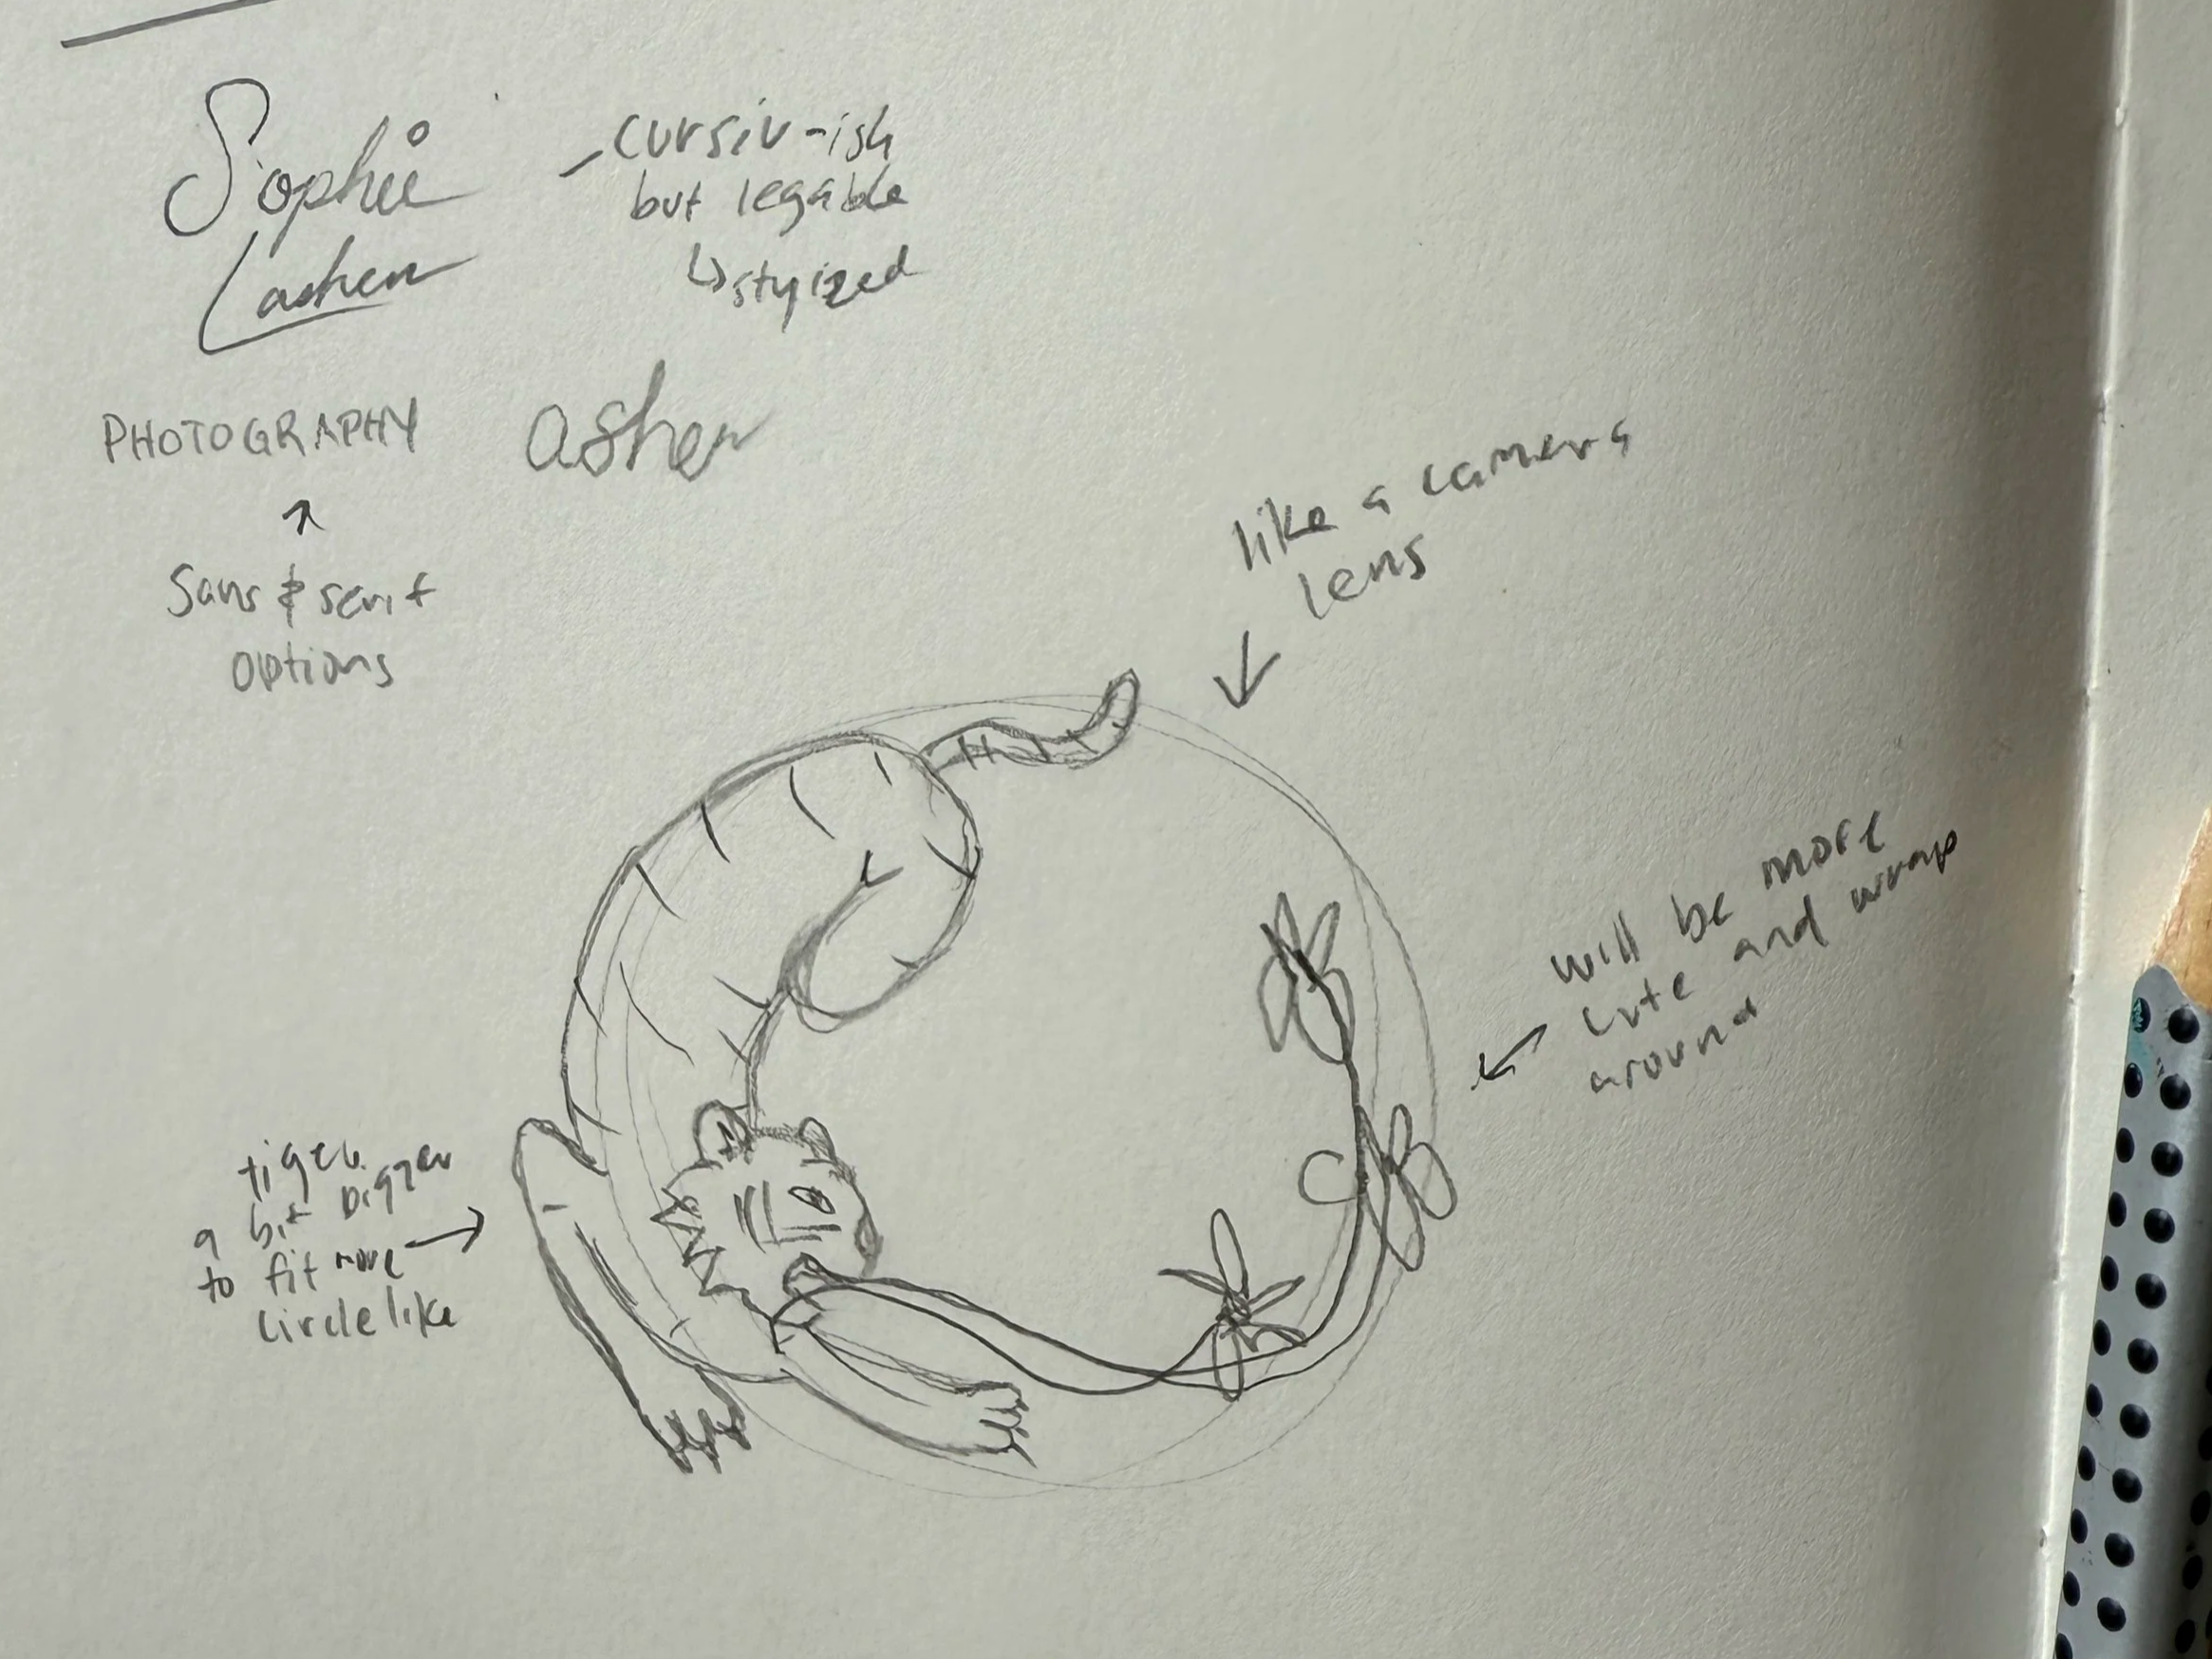 Sophie
Lashen
- cursiv-ish
but legable
↳ stylized
PHOTOGRAPHY
ashen
↗
Sans & serif
options
like a camera
lens
↓
will be more
cute and wrap
around
←
tiger
a bit bigger
to fit more →
circle like